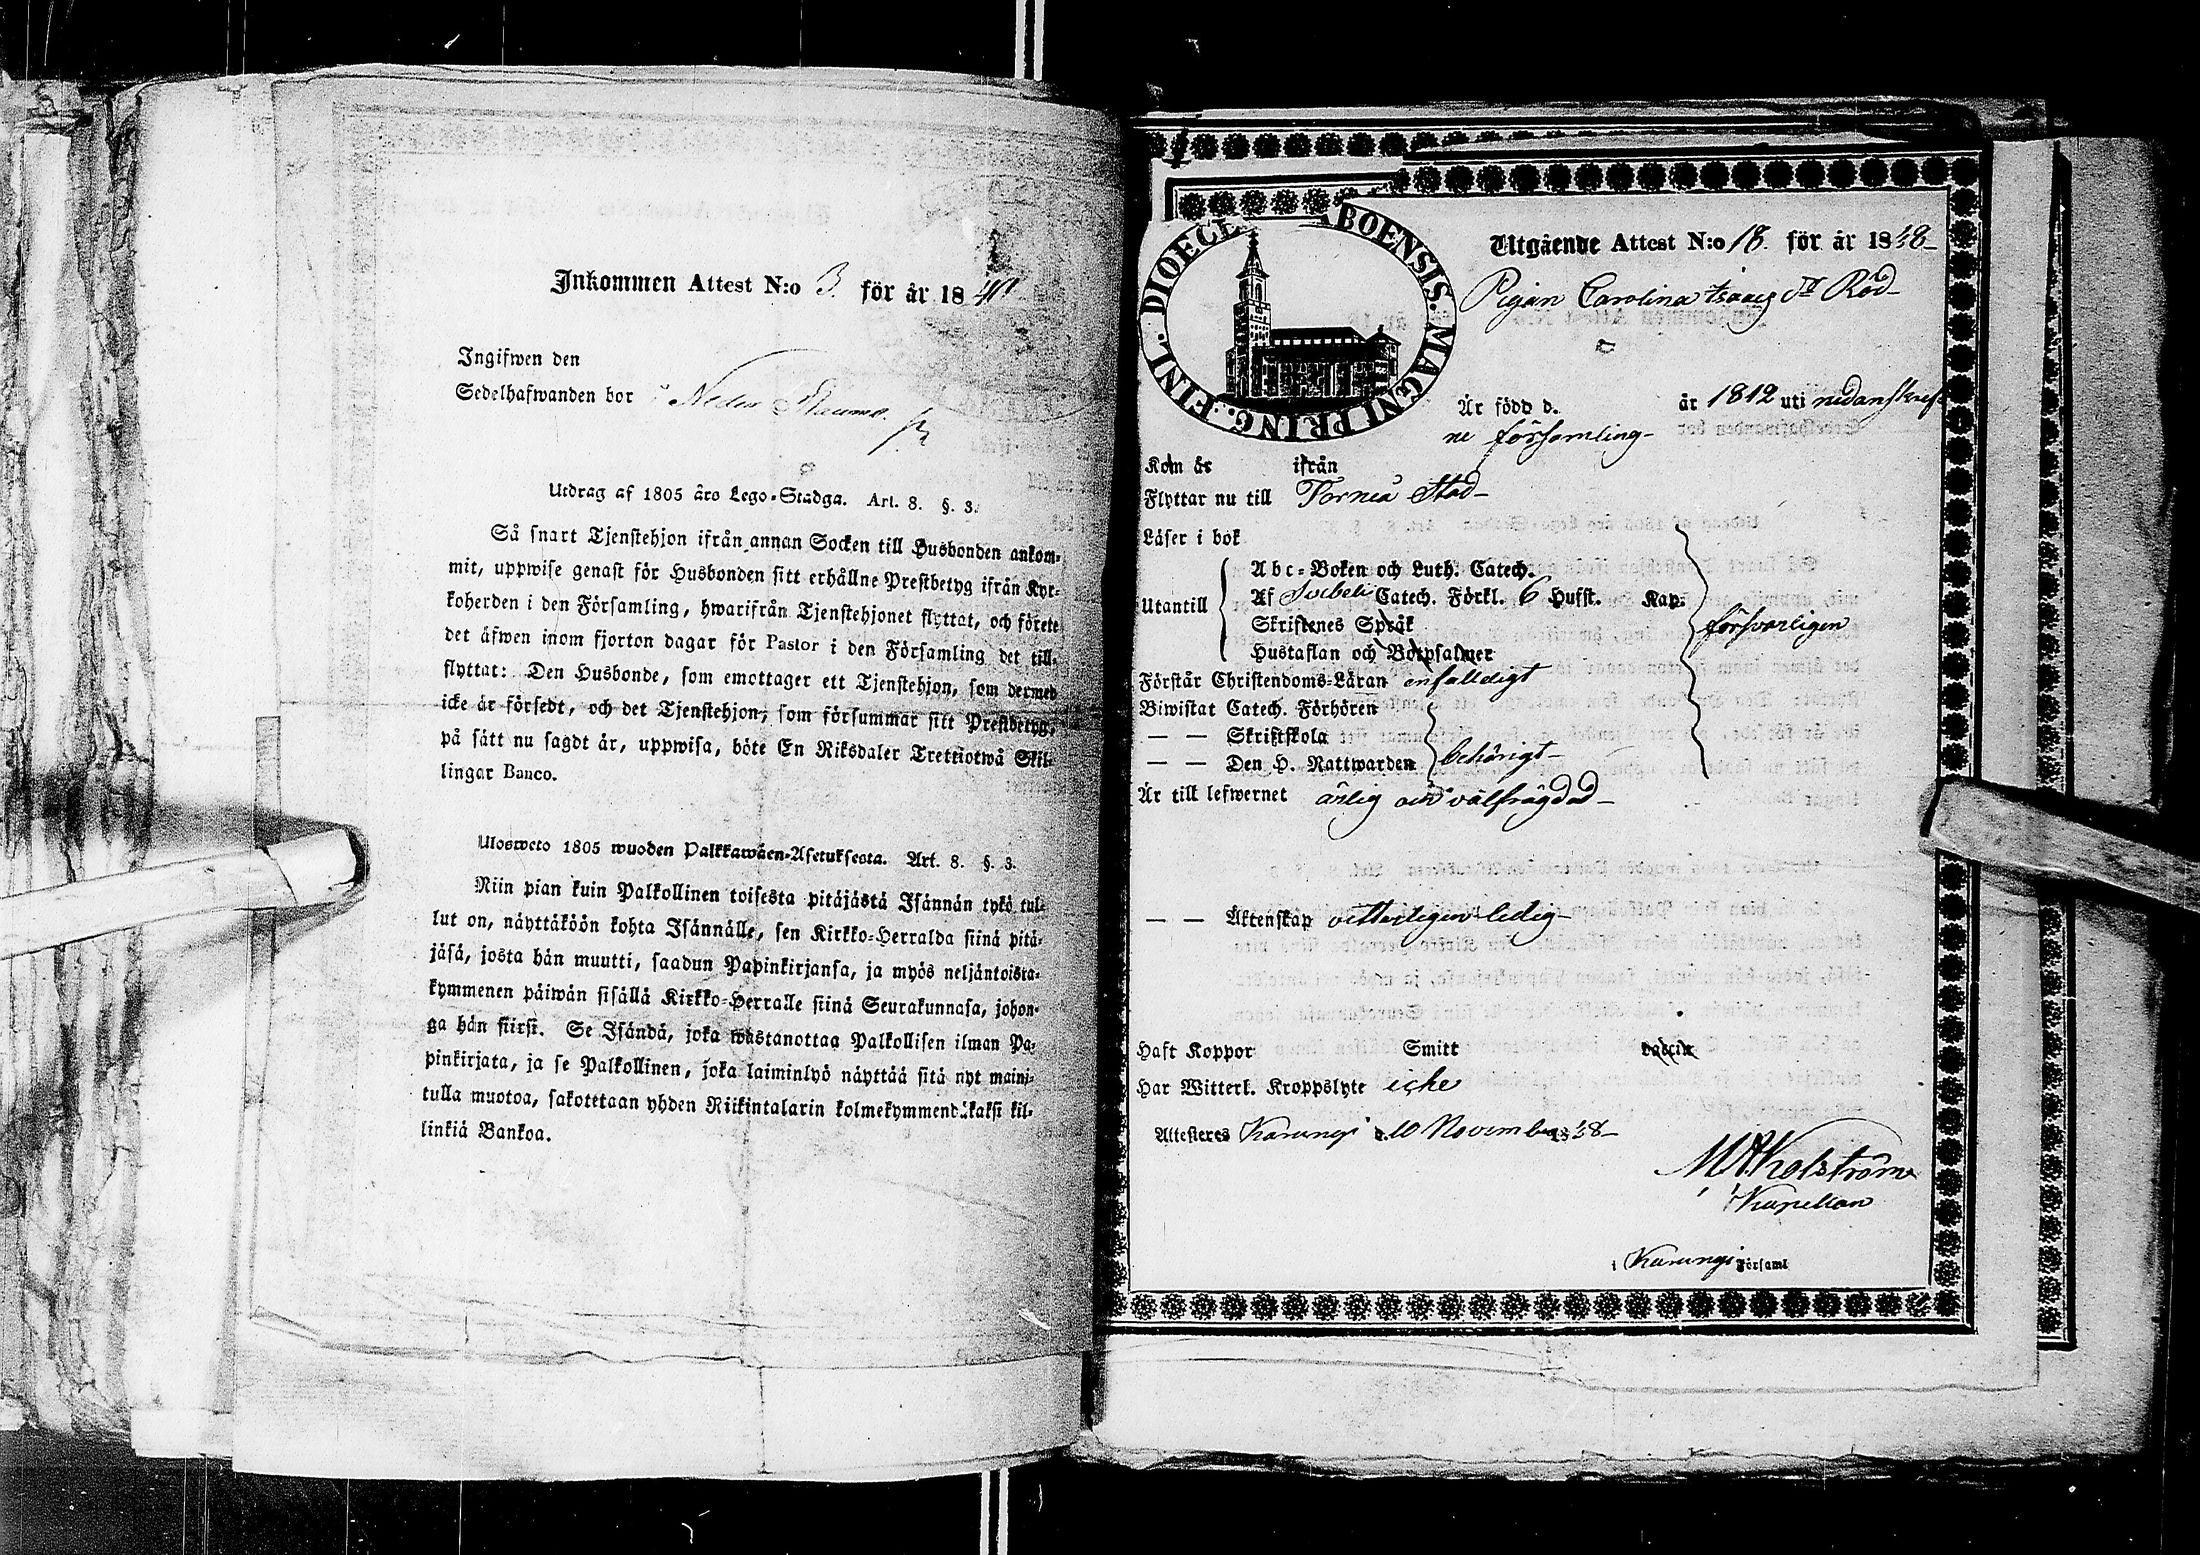 Inkommen Attest N:o 3. för år 18
Ingifwen den
Sedelhafwanden bor i Neder
Utdrag af 1805 års Lego-Stadga. Art. 8. §. 3.
Så snart Tjenstehjon ifrån annan Socken till Husbonden ankom-
mit, uppwise genast för Husbonden sitt erhållne Prestbetyg ifrån Kyr-
koherden i den Församling, hwarifrån Tjenstehjonet flyttat, och förete
det äfwen inom fjorton dagar för Pastor i den Församling det till-
flyttat: Den Husbonde, som emottager ett Tjenstehjon, som dermed
icke är försedt, och det Tjenstehjon, som försummar sitt Prestbetyg,
på sätt nu sagdt är, uppwisa, böte En Riksdaler Trettiotwå Skil-
lingar Banco.
Ulosweto 1805 wuoden Palkkawäen-Asetuksesta. Art. 8. §. 3.
Niin pian kuin Palkollinen toisesta pitäjästä Isännän tykö tul-
lut on, näyttäköön kohta Isännälle, sen Kirkko-Herralda siinä pitä-
jäsä, josta hän muutti, saadun Papinkirjansa, ja myös neljäntoista-
kymmenen päiwän sisällä Kirkko-Herralle siinä Seurakunnasa, johon-
ga hän siirsi. Se Isändä, joka wastanottaa Palkollisen ilman Pa-
pinkirjata, ja se Palkollinen, joka laiminlyö näyttää sitä nyt maini-
tulla muotoa, sakotetaan yhden Riikintalarin kolmekymmendäkaksi kil-
linkiä Bankoa.
DIOECE ABOENSIS. MAGNI PRING. FINL.
Utgående Attest N:o 18. för år 1848
Pigan Carolina Isaacs Dr Röd
Är född d. år 1812 uti nedanskref-
ne församling
Kom år ifrån
Flyttar nu till Torneå Stad
Läser i bok
Abc-Boken och Luth. Catech.
Utantill Af Svebeli Catech. Förkl. 6 Hufst. Kap.
Skriftenes Språk försvarligen
Hustaflan och Botpsalmer
Förstår Christendoms-Läran enfaldigt
Biwistat Catech. Förhören
— — Skriftskola
— — Den H. Nattwarden behörigt
Är till lefwernet ärlig och välfrägdad
— — Äktenskap vetterligen ledig
Haft Koppor Smitt vaccin
Har Witterl. Kroppslyte icke
Attesteres Karungi d. 10 November 1848
Kapellan
i Karungi Församl